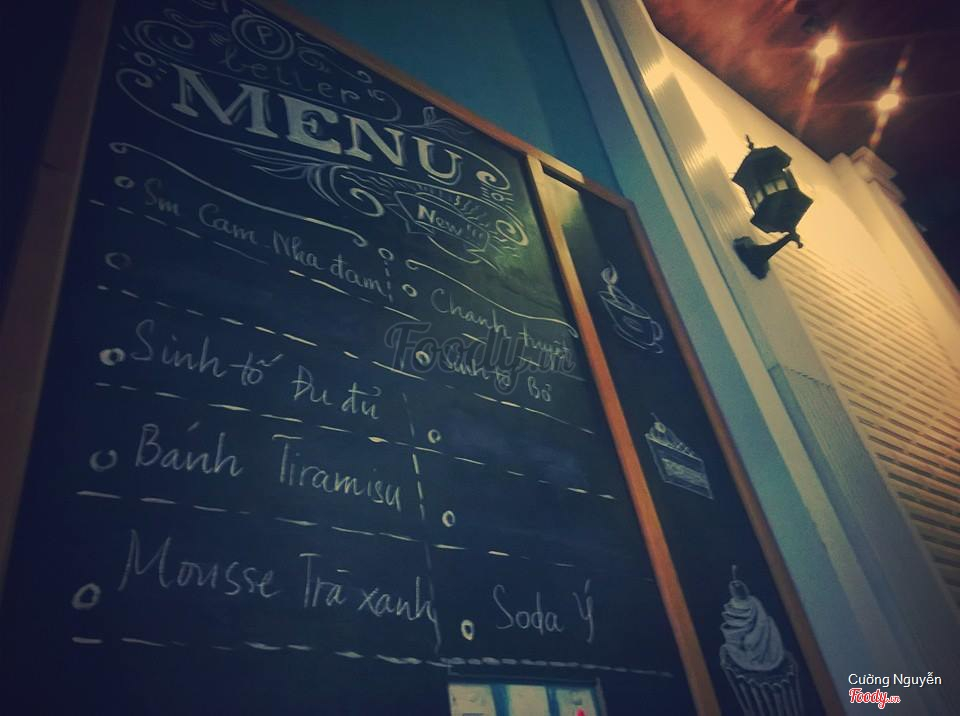 P
beller
MENU
New!!!
Sm Cam Nha đam
Chanh tuyết
Sinh tố Bơ
Sinh tố Đu đủ
Bánh Tiramisu
Mousse Trà xanh
Soda Ý
Foody.vn
Cường Nguyễn
Foody.vn